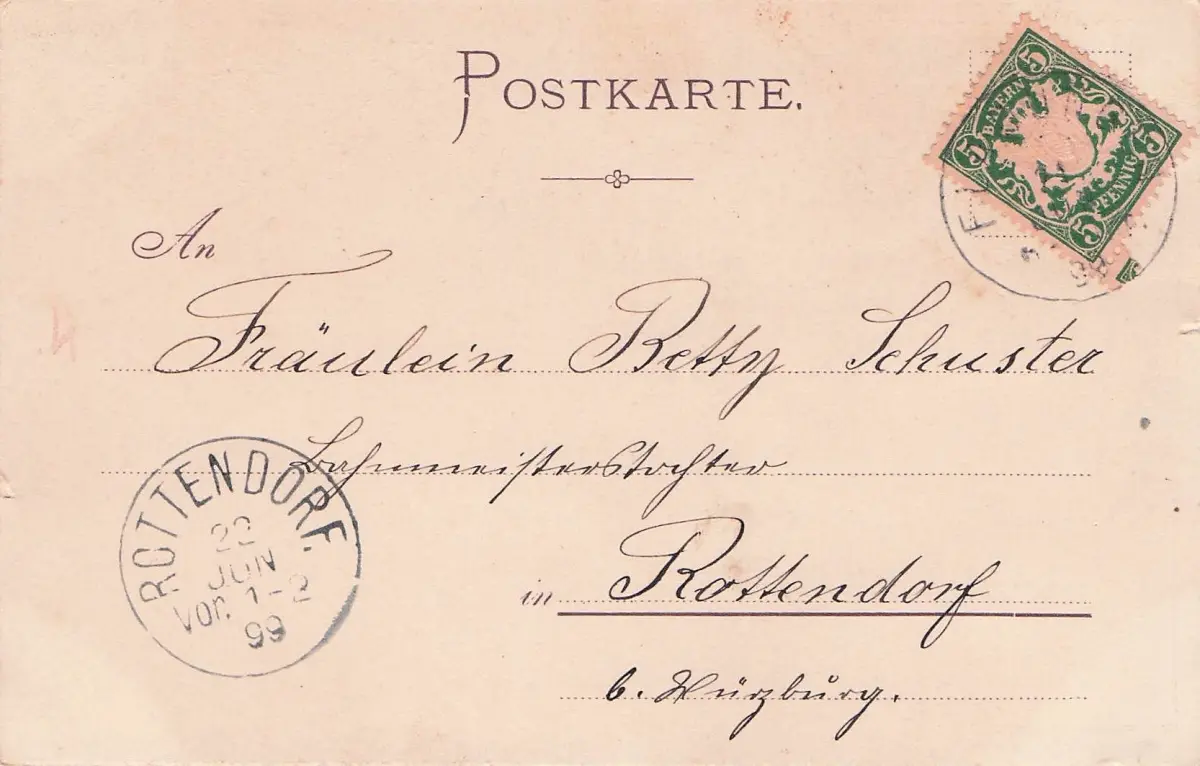 POSTKARTE.
5 5 5 5
BAYERN
PFENNIG
An
Fräulein Betty Schuster
Bahnmeisterstochter
in Rottendorf
b. Würzburg.
ROTTENDORF.
22
JUN
Vor. 1-2
99